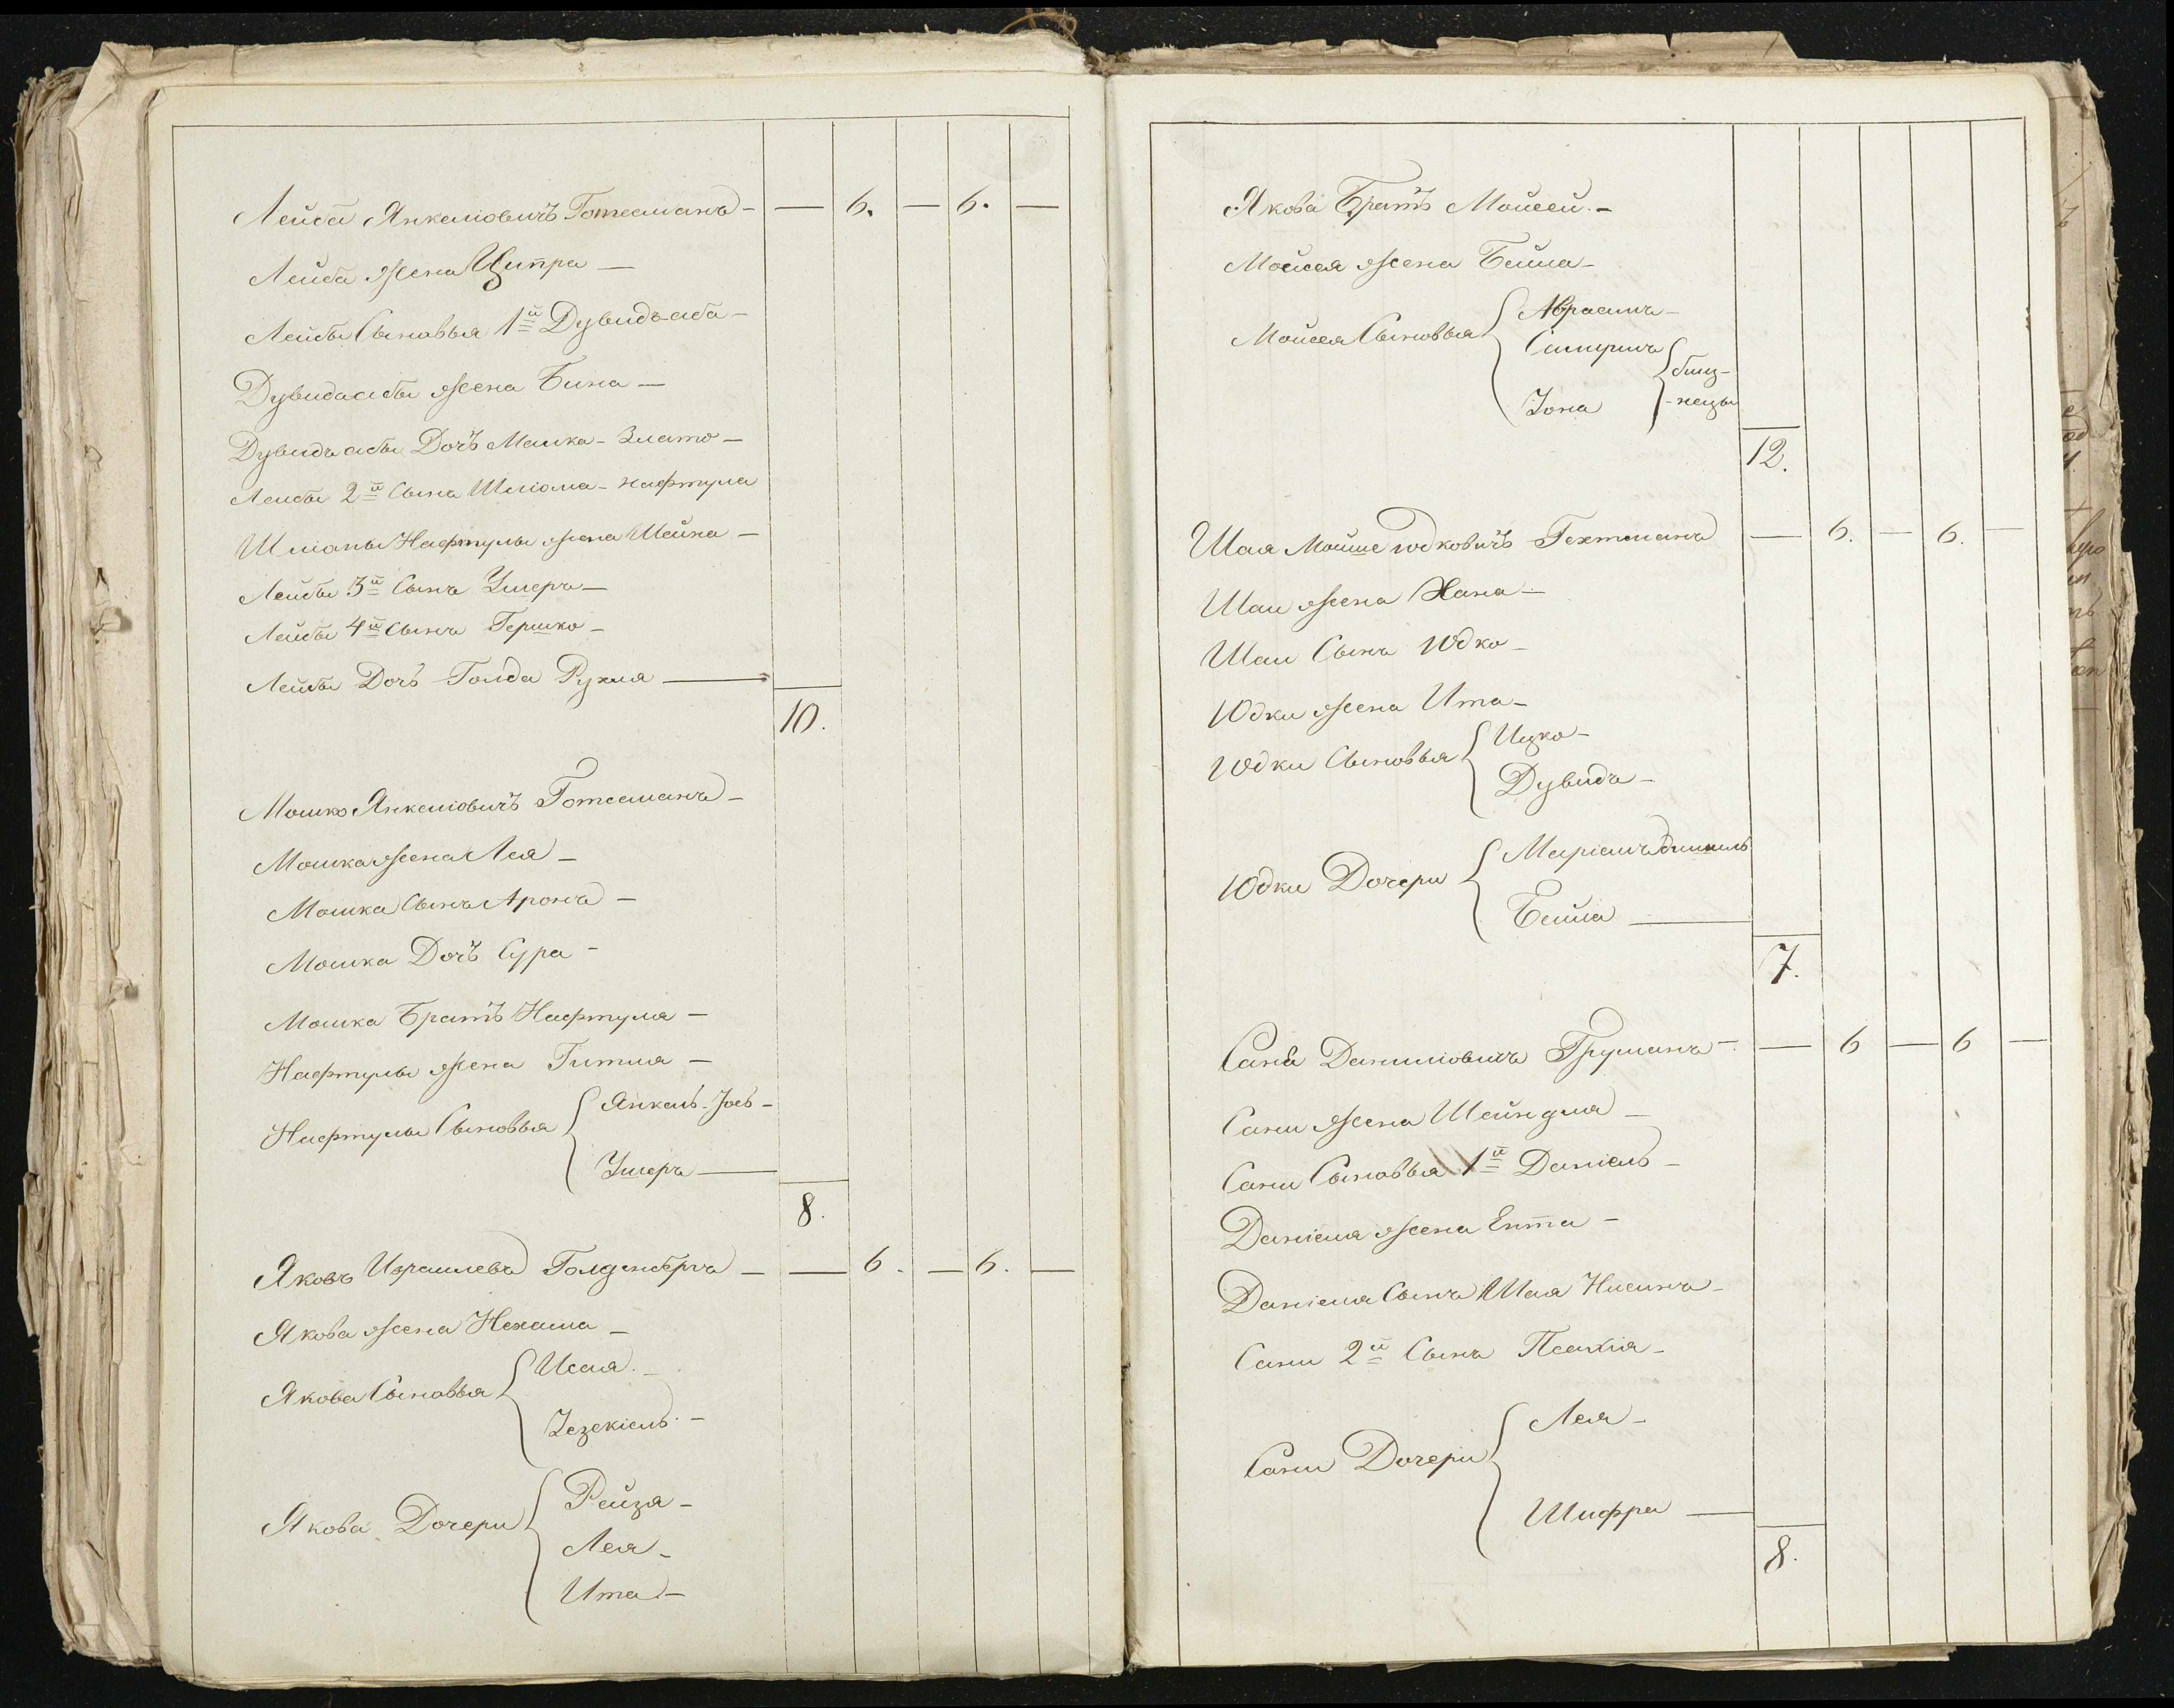 Лейба Янкеліовичъ Готесманъ — — 6. — 6. —
Лейба жена Ципра —
Лейбы Сыновья 1й Дувидъ аба —
Дувида абы жена Бина —
Дувидъ абы Дочъ Малка - Злато —
Лейбы 2й Сынъ Шліома - Нафтула
Шліомы Нафтулы жена Шейна —
Лейбы 3й Сынъ Ушеръ —
Лейбы 4й Сынъ Гершко —
Лейбы Дочь Голда Рухля —
10.
Мошко Янкеліовичъ Готесманъ —
Мошка жена Лея —
Мошка Сынъ Аронъ —
Мошка Дочь Сура —
Мошка Братъ Нафтула —
Нафтулы жена Гитля —
Нафтулы Сыновья { Янкель - Іось —
Ушеръ —
8.
Яковъ Израилевъ Голденбергъ — — 6. — 6. —
Якова жена Нехама —
Якова Сыновья { Исаія. —
Іезекіель. —
Якова Дочери { Рейзя —
Лея —
Ита —
Якова Братъ Мойсей. —
Мойсея жена Бейла —
Мойсея Сыновья { Авраамъ —
Самуилъ } близ-
Іона } -нецы
12.
Шая Мойше юдковичъ Гехтманъ — 6. — 6. —
Шаи жена Хана —
Шаи Сынъ Юдко —
Юдки жена Ита —
Юдки Сыновья { Ицко —
Дувидъ —
Юдки Дочери { Маріамъ
Бейла —
7.
Саня Даниліовичъ Груманъ — — 6 — 6 —
Сани жена Шейндля —
Сани Сыновья 1й Даніель —
Даніеля жена Ента —
Даніеля Сынъ Шая Нисинъ —
Сани 2й Сынъ Псахія —
Сани Дочери { Лея —
Шифра —
8.